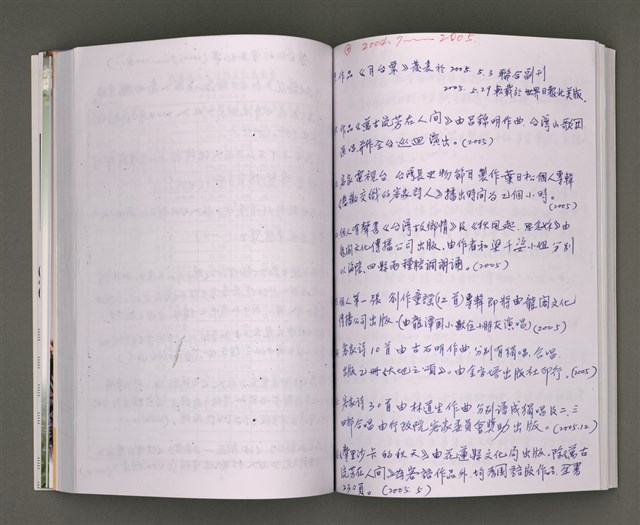 2004.7——2005.
作品《月台票》發表於2005.5.3聯合副刊
2005.5.29轉載於世界日報北美版.
作品《萬古流芳在人間》由呂錦明作曲,台灣山歌團
演唱並作全台巡迴演出。(2005)
客家電視台 台灣縣史物節目製作葉日松個人專輯
客家詩人》播出時間為2個小時。
(2005)
個人有聲書《台灣故鄉情》及《秋風起,
龍閣文化傳播公司出版,由作者和梁千姿小姐分別
以海陸、四縣兩種腔調朗誦。(2005)
個人第一張 創作童謠(12首)專輯即將由龍閣文化
傳播公司出版(由龍潭國小數位小朋友演唱)(2005)
客家詩10首由古石明作曲分別有獨唱、合唱.
《大地之頌》。由全音譜出版社印行。(2005)
客家詩30首由林道生作曲分別譜成獨唱及二、三
部合唱由行政院客家委員會獎助出版。(2005.12)
《摩里沙卡的秋天》由花蓮縣文化局出版,除《萬古
流芳在人間》為客語作品外,均為國語版作品,全書
230頁。(2005.5)